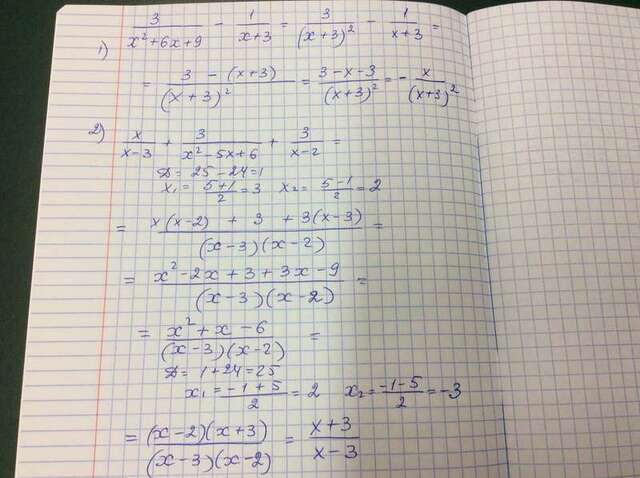 1) 3/(x²+6x+9) - 1/(x+3) = 3/(x+3)² - 1/(x+3) =
= (3 - (x+3))/(x+3)² = (3-x-3)/(x+3)² = - x/(x+3)²
2) x/(x-3) + 3/(x²-5x+6) + 3/(x-2) =
D = 25-24=1
x₁ = (5+1)/2 = 3 x₂ = (5-1)/2 = 2
= (x(x-2) + 3 + 3(x-3))/((x-3)(x-2)) =
= (x²-2x+3+3x-9)/((x-3)(x-2)) =
= (x²+x-6)/((x-3)(x-2)) =
D = 1+24=25
x₁ = (-1+5)/2 = 2 x₂ = (-1-5)/2 = -3
= ((x-2)(x+3))/((x-3)(x-2)) = (x+3)/(x-3)